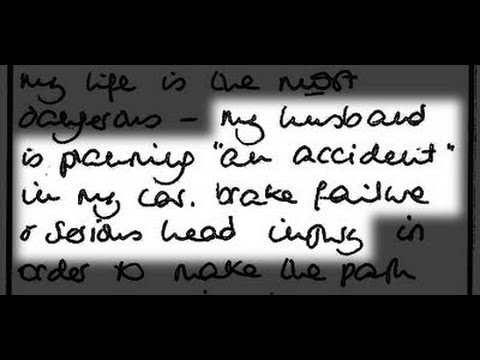 my life is the most
dangerous - my husband
is planning "an accident"
in my car. brake failure
& serious head injury in
order to make the path